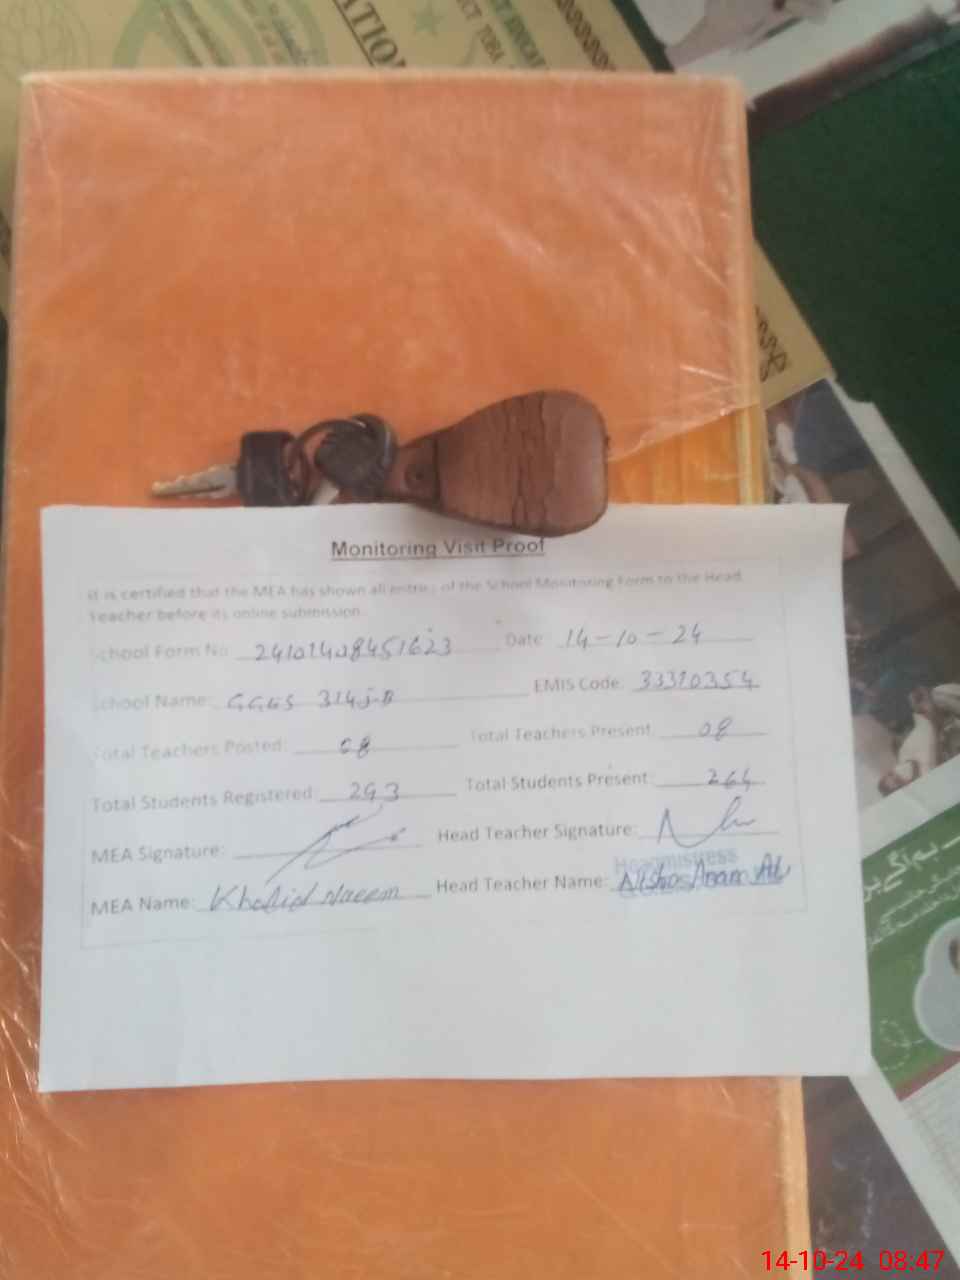 ATION
T EDUCAT
CT TOBA
Monitoring Visit Proof
It is certified that the MEA has shown all entries of the School Monitoring Form to the Head
Teacher before its online submission.
School Form No 24101408451623 Date 14-10-24
School Name: GGES 314 J.B EMIS Code: 33310354
Total Teachers Posted: 08 Total Teachers Present 08
Total Students Registered: 293 Total Students Present: 264
MEA Signature: Head Teacher Signature:
Headmistress
MEA Name: Khalid Naeem Head Teacher Name: Anam
14-10-24 08:47